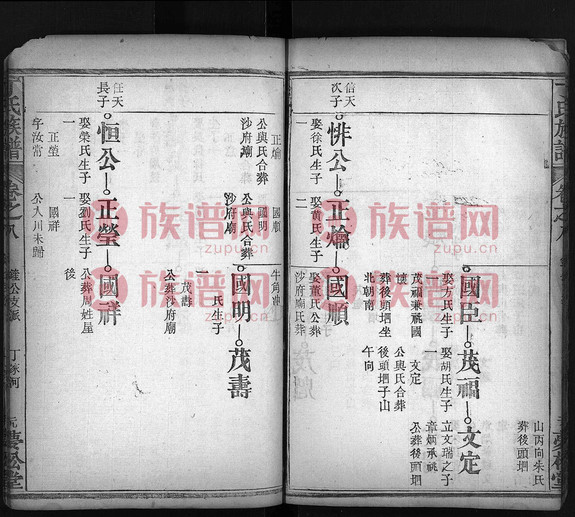 山丙向朱氏
葬後頭堋
國臣
茂福
文定
娶方氏生子
茂福兼祧國
懷
葬後頭堋坐
北朝南
娶胡氏生子
一
文定
公與氏合葬
後頭堋子山
午向
立文瑞之子
章炳承祧
公葬後頭堋
信天
次子
悱公
正爚
國順
娶徐氏生子
一
娶黃氏生子
二
娶董氏公葬
沙府廟氏葬
牛角
正爚
公與氏合葬
沙府廟
國順
公與氏合葬
沙府廟
國明
茂壽
氏生子
一
茂壽
公葬沙府廟
任天
長子
恒公
正瑩
國祥
娶榮氏生子
一
娶劉氏生子
一
公葬周姓屋
後
正瑩
字汝常
國祥
公入川未歸
丁氏族譜
卷之八
鐘公支派
丁
夢松堂
氏族譜
卷之八
夢松堂
族谱网
zupu.cn
族谱网
zupu.cn